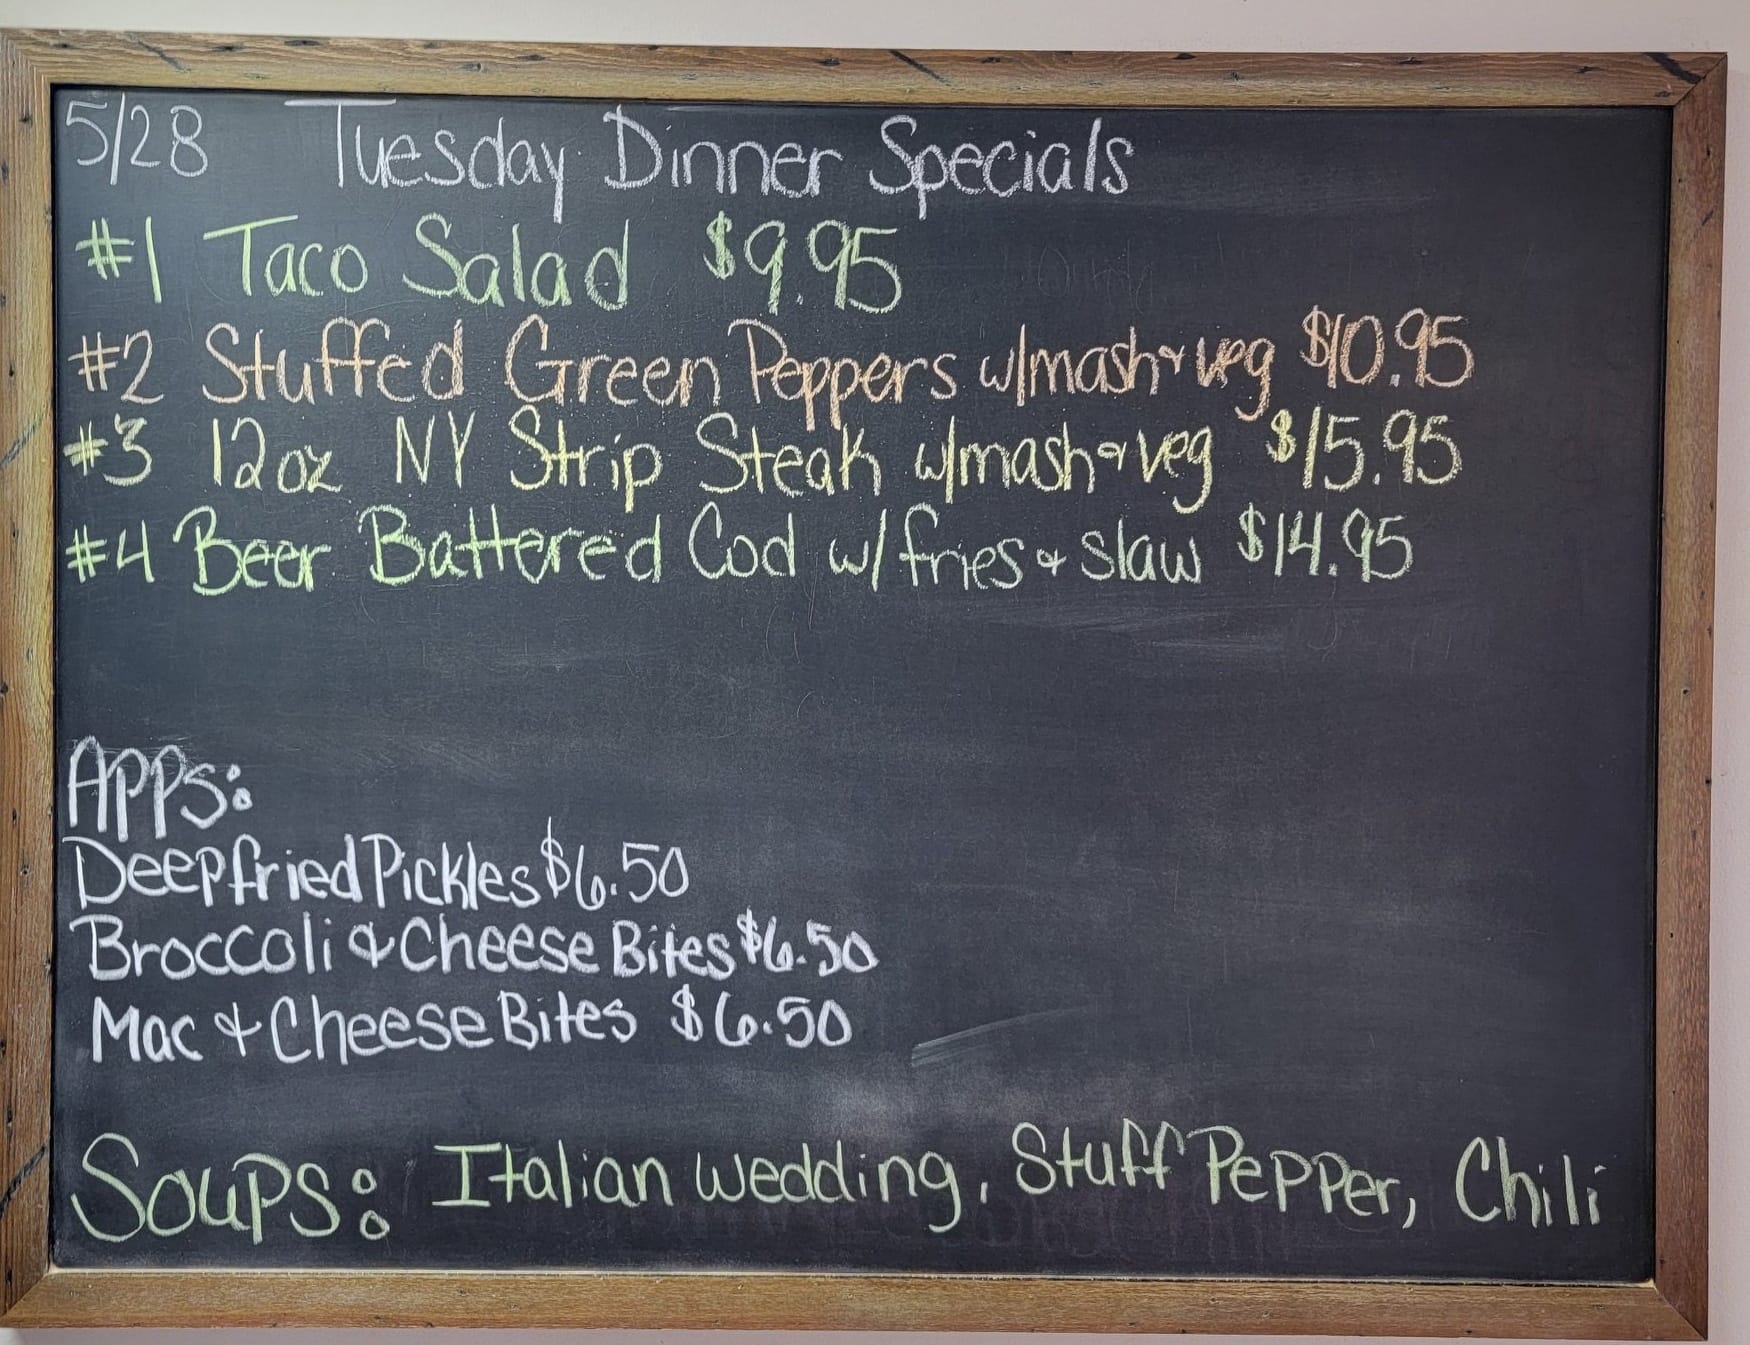 5/28 Tuesday Dinner Specials
#1 Taco Salad $9.95
#2 Stuffed Green Peppers w/mash & veg $10.95
#3 12oz NY Strip Steak w/mash & veg $15.95
#4 Beer Battered Cod w/ fries & slaw $14.95
APPS:
Deepfried Pickles $6.50
Broccoli & Cheese Bites $6.50
Mac & Cheese Bites $6.50
Soups: Italian wedding, Stuff Pepper, Chili